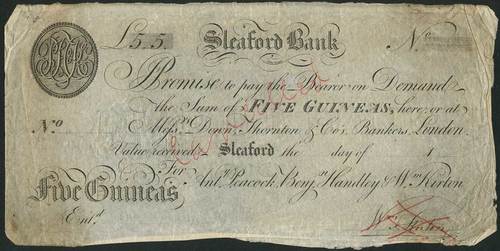 £5.5. Sleaford Bank N.º
Promise to pay the Bearer on Demand
the Sum of FIVE GUINEAS, here, or at
N.º Mess.rs Down, Thornton & Co's. Bankers, London
Value received Sleaford the day of 1
For
Five Guineas Ant.y Peacock, Benj.n Handley & W.m Kirton
Ent.d
Wm. Kirton